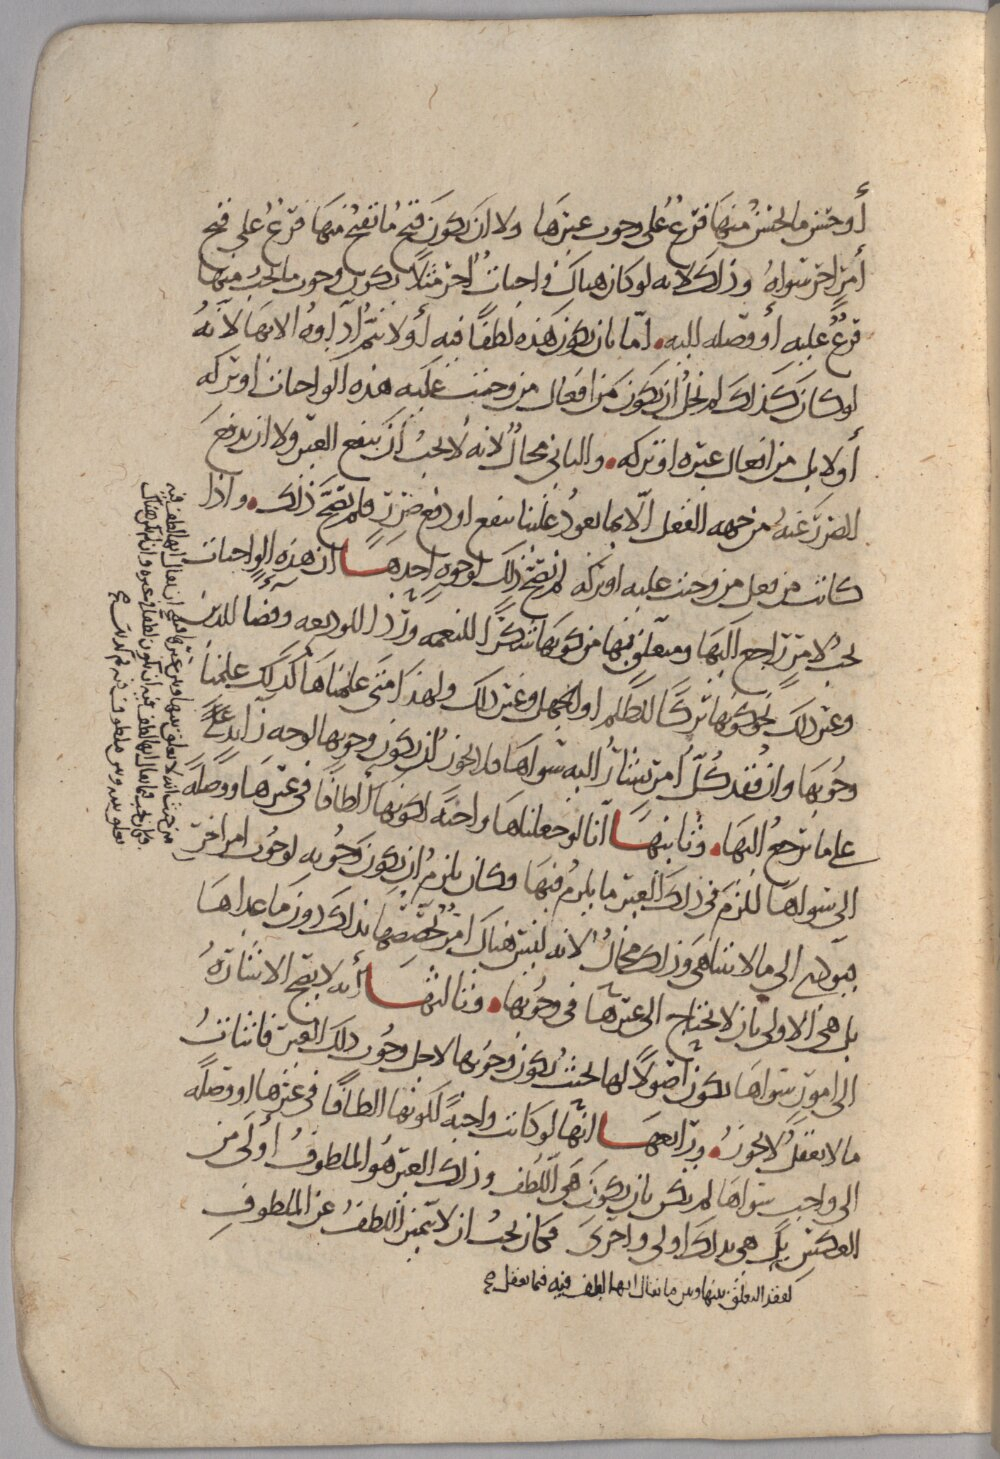 أو حسن ما يحسن منها فرع على وجوب غيرها ولا ان يكون قبح ما تقبح منها فرع على قبح
أمر اخر سواه وذلك لانه لو كان هناك واجبات اخر مثلا يكون وجوب ما يجب منها
فرع عليه أو وصله اليه اما بان يكون هذه لطفا فيه أو لا يتم اداوه الا بها لانه
لو كان كذلك لم يخل ان يكون من افعال من وجبت عليه هذه الواجبات او تركه
أو لا بل من افعال غيره او تركه والثاني محال لانه لا يجب أن ينفع الغير ولا ان يدفع
الضرر عنه من جهه العقل الا بما يعود علينا بنفع او دفع ضرر فلم يصح ذلك واذا
كانت من فعل من وجبت عليه او تركه لم يصح ذلك لوجوه احدها ان هذه الواجبات
يجب لامر راجع اليها ومتعلق بها من كونها شكرا للنعمه وردا للوديعه وقضا للدين
وغير ذلك نحو كونها تركا للظلم او الجهل وغير ذلك ولهذا متى علمناها كذلك علمنا
وجوبها وان فقد كل امر يشار اليه سواها فلا يجوز ان يكون وجوبها لوجه زايد
على ما يرجع اليها وثانيها انا لو جعلناها واجبه لكونها الطافا في غيرها ووصله
الى سواها للزم في ذلك الغير ما يلزم فيها وكان يلزم ان يكون وجوبه لوجوب امر اخر
الى ما لا يتناهى وذلك محال لانه ليس هناك امر تخصصها بذلك دون ما عداها
بل هي الاولى بان لا تحتاج الى غيرها في وجوبها وثالثها أنه لا يصح الاشاره
الى امور سواها يكون اصولا لها بحيث يكون وجوبها لاجل وجوب ذلك الغير فاثبات
ما لا يعقل لا يجوز ورابعها انها لو كانت واجبة لكونها الطافا في غيرها او وصله
الى واجب سواها لم يكن بان يكون هي اللطف وذلك الغير هو الملطوف أولى من
العكس بل هي بذلك اولى واحرى فكان يجب ان لا يتميز اللطف عن الملطوف
لفقد التعلق بينها وبين ما يقال انها لطف فيه فيما يعقل